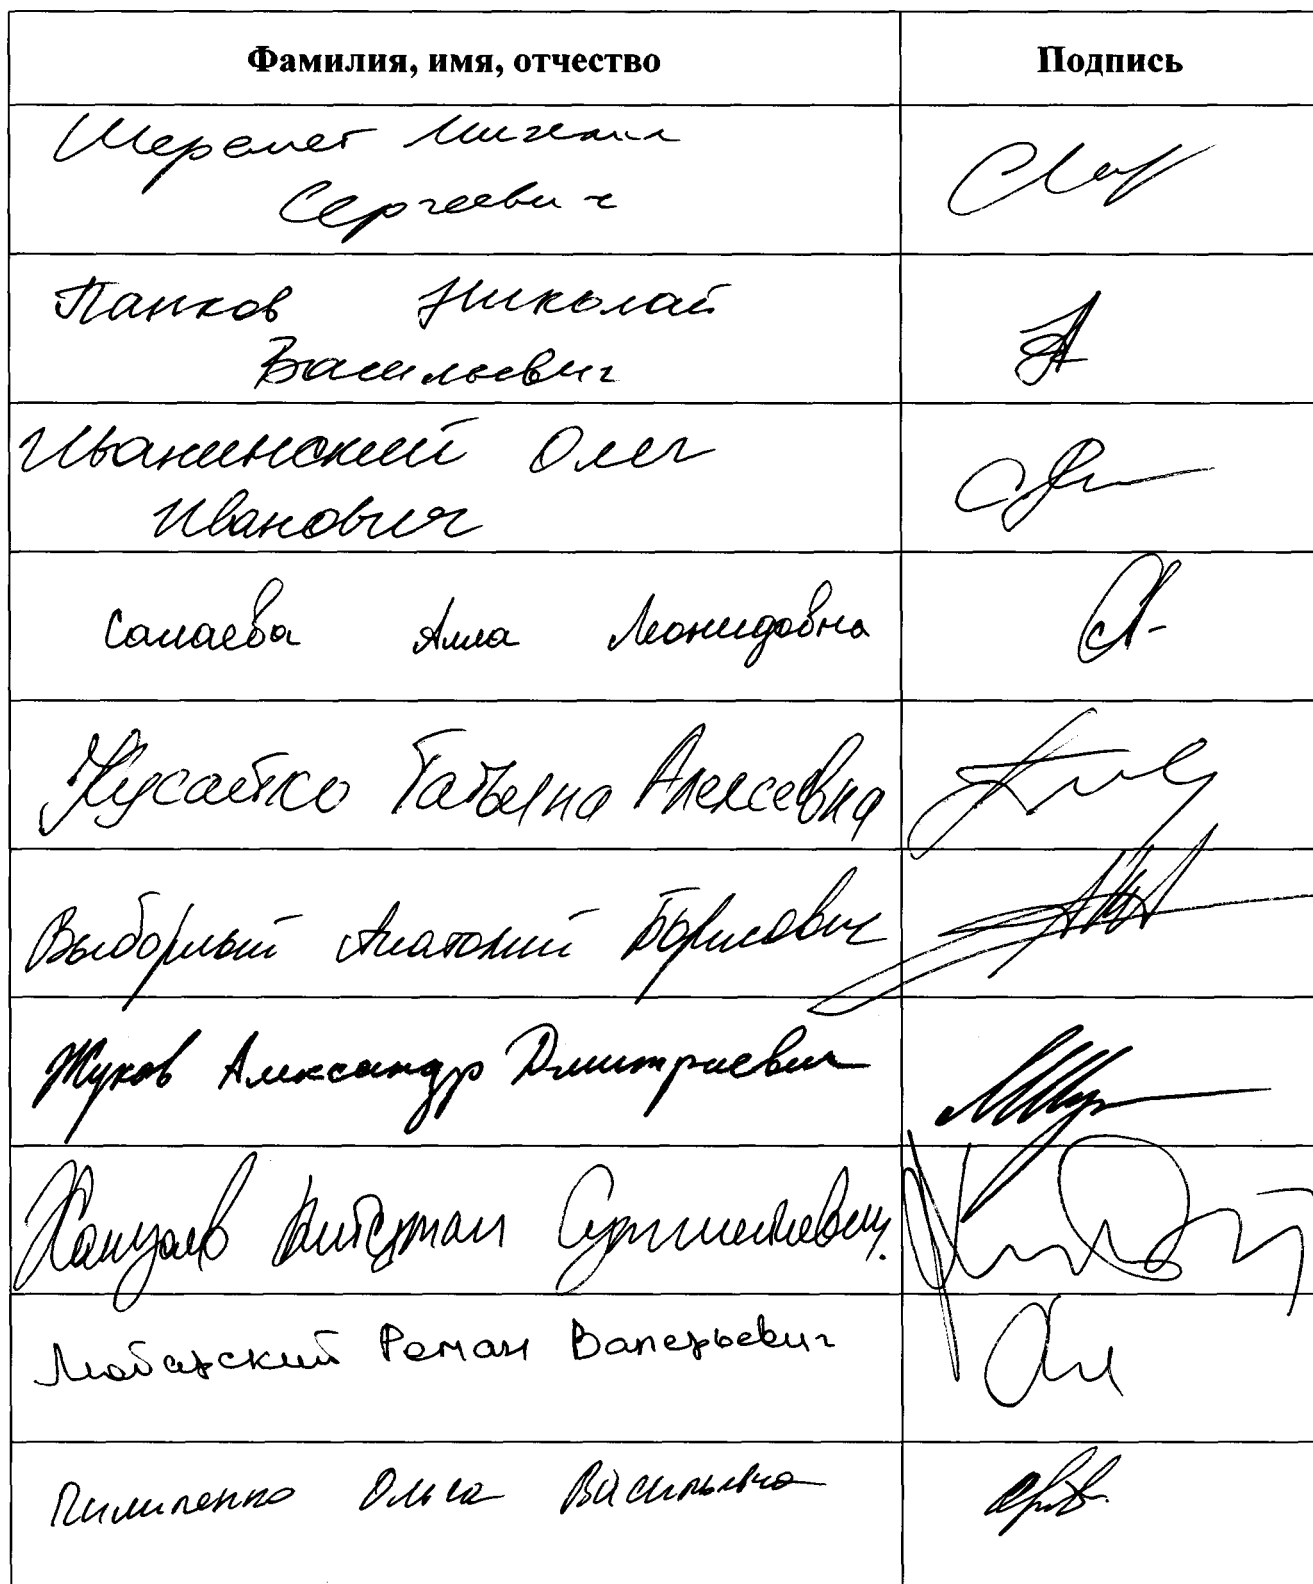 Фамилия, имя, отчество Подпись
Шеремет Михаил
Сергеевич
Панков Николай
Васильевич
Иванинский Олег
Иванович
Салаева Алла Леонидовна
Кусайко Татьяна Алексеевна
Выборный Анатолий Борисович
Жуков Александр Дмитриевич
Хамзаев
Любарский Роман Валерьевич
Пилипенко Ольга Васильевна